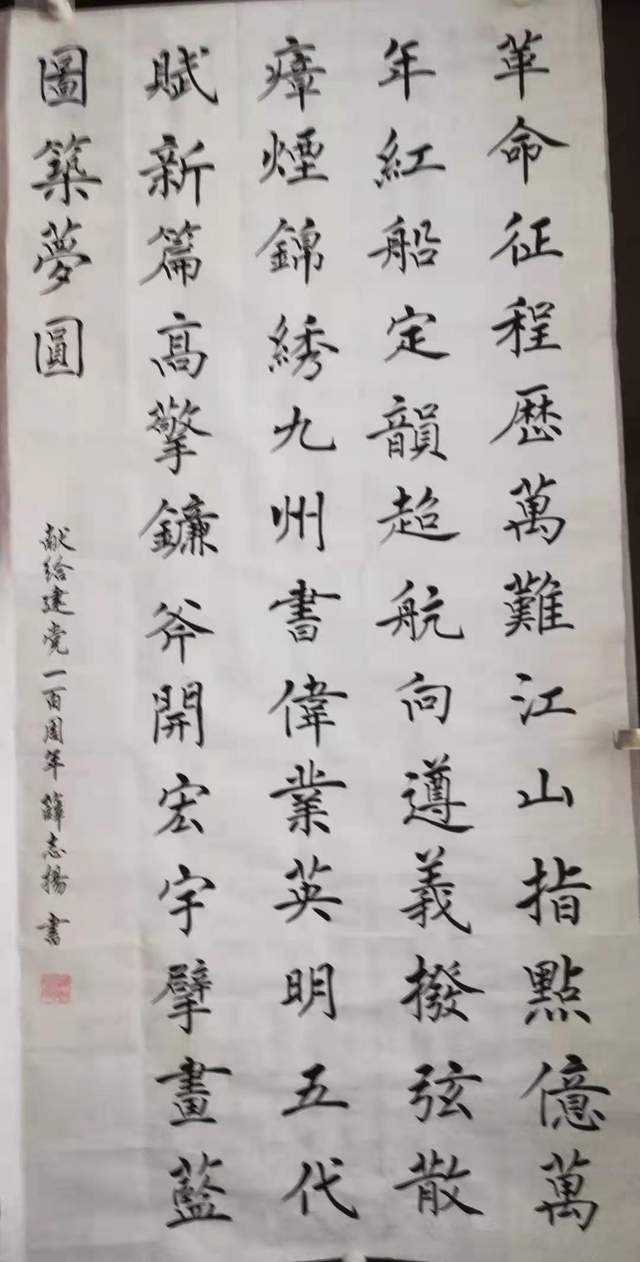 革命征程歷萬難江山指點億萬
年紅船定韻超航向遵義撥弦散
瘴煙錦綉九州書偉業英明五代
賦新篇高擎鐮斧開宏宇擘畫藍
圖築夢圓
献给建党一百周年 薛志揚 書